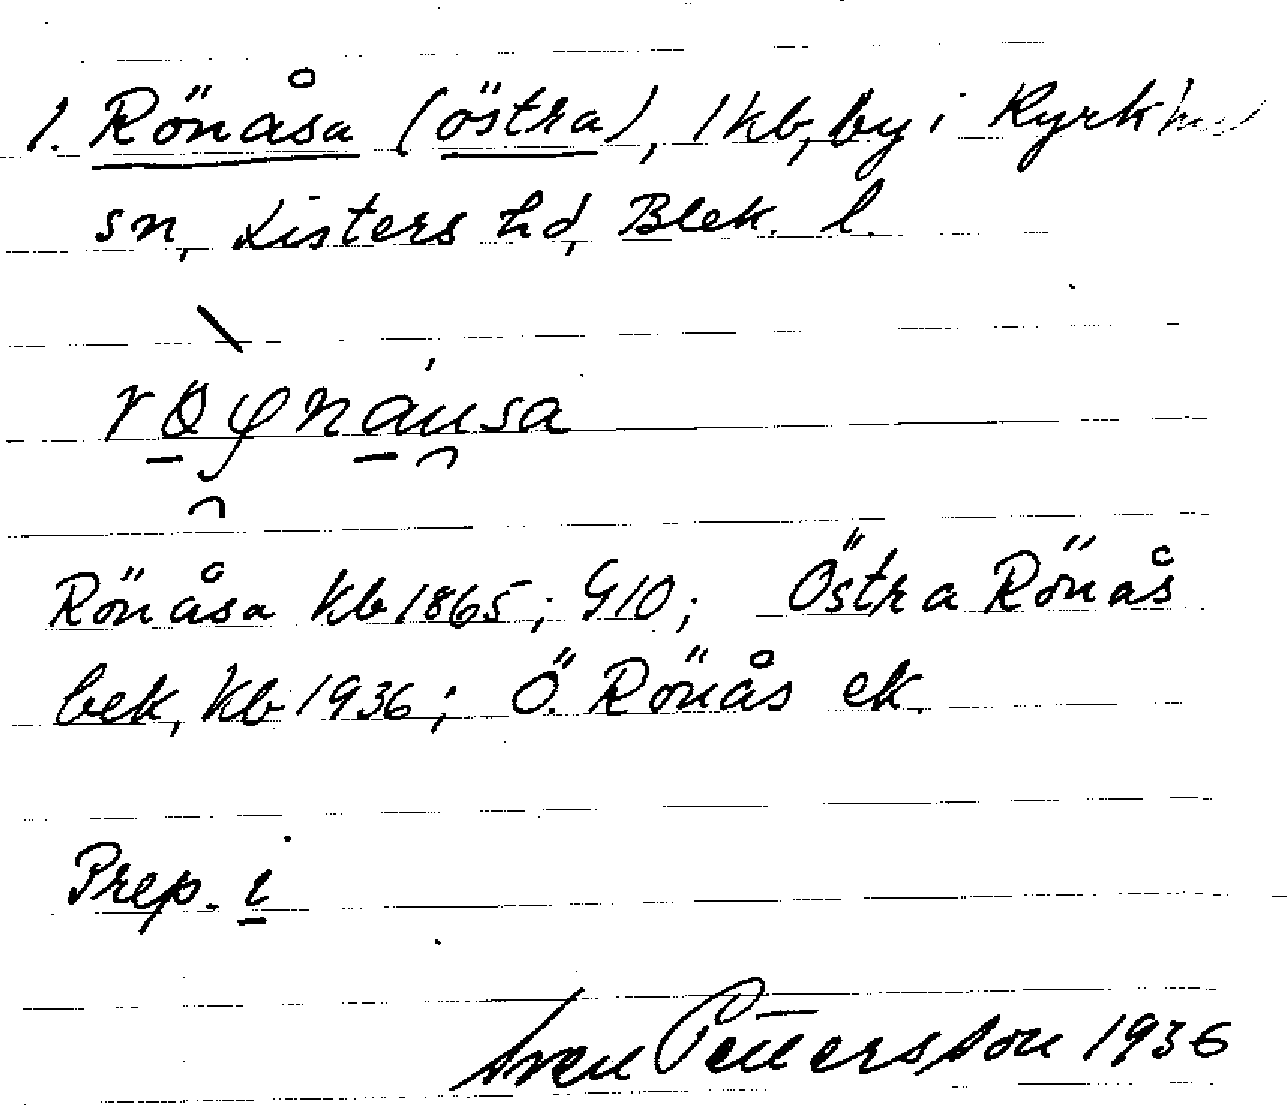 1. Rönåsa (östra), 1 kb, by i Kyrkhu
sn, Listers hd, Blek. l.
Rönåsa Kb 1865; G10; Östra Rönås
bek, Kb 1936; Ö. Rönås ek.
Prep. i
Sven Pettersson 1936